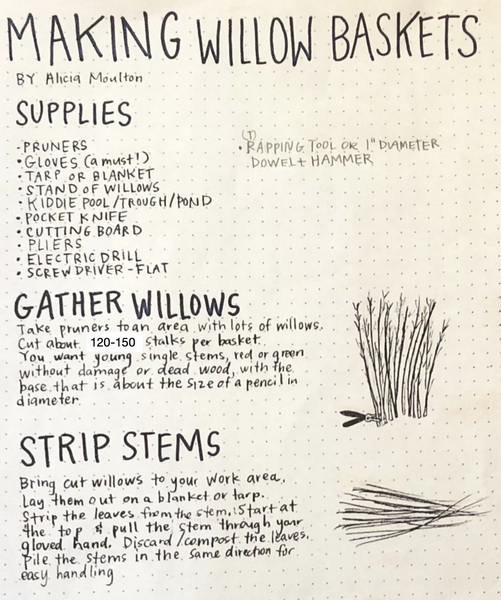 MAKING WILLOW BASKETS
BY Alicia Moulton
SUPPLIES
- PRUNERS
• GLOVES (a must!)
• TARP OR BLANKET
• STAND OF WILLOWS
• KIDDIE POOL/TROUGH/POND
• POCKET KNIFE
• CUTTING BOARD
• PLIERS
• ELECTRIC DRILL
• SCREW DRIVER - FLAT
(T)
• RAPPING TOOL OR 1" DIAMETER
DOWEL + HAMMER
GATHER WILLOWS
Take pruners to an area with lots of willows.
Cut about 120-150 stalks per basket.
You want young single stems, red or green
without damage or dead wood, with the
base that is about the size of a pencil in
diameter.
STRIP STEMS
Bring cut willows to your work area.
Lay them out on a blanket or tarp.
Strip the leaves from the stem. Start at
the top & pull the stem through your
gloved hand. Discard/compost the leaves.
Pile the stems in the same direction for
easy handling